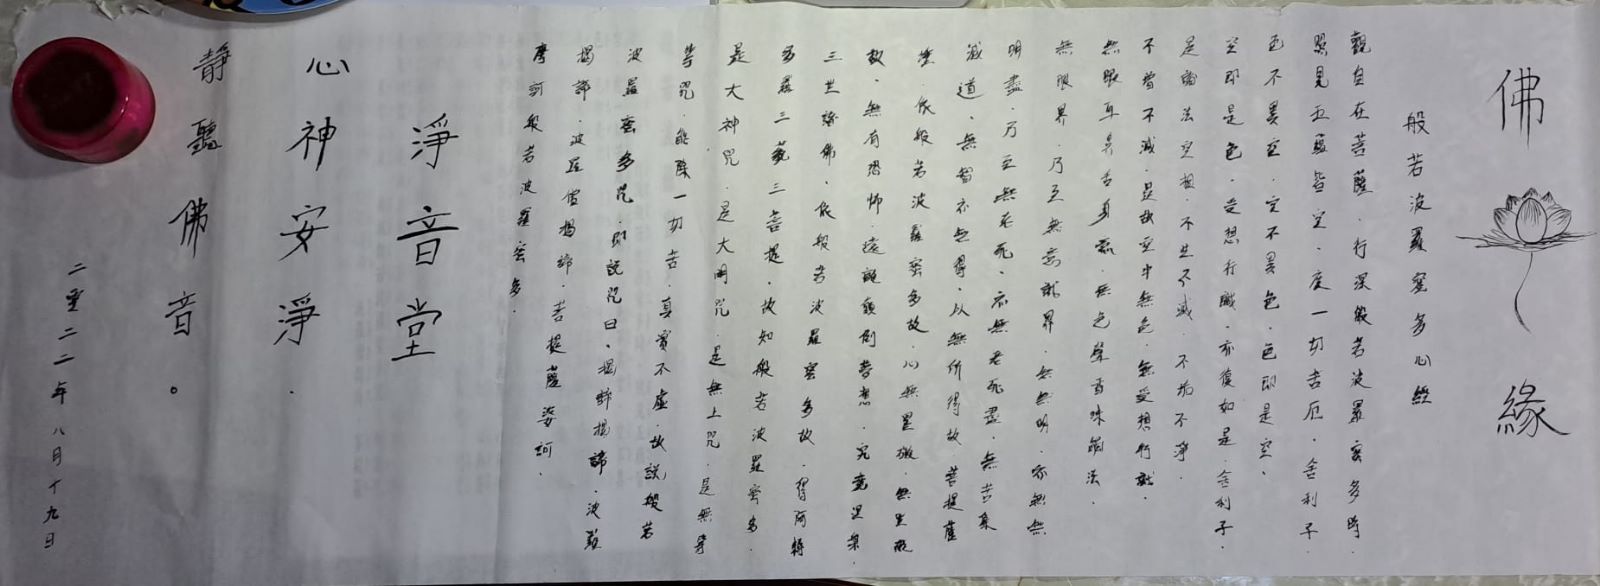 佛緣
般若波羅蜜多心經
觀自在菩薩．行深般若波羅蜜多時．
照見五蘊皆空．度一切苦厄．舍利子．
色不異空．空不異色．色即是空．
空即是色．受想行識．亦復如是．舍利子．
是諸法空相．不生不滅．不垢不淨．
不增不減．是故空中無色．無受想行識．
無眼耳鼻舌身意．無色聲香味觸法．
無眼界．乃至無意識界．無無明．亦無無
明盡．乃至無老死．亦無老死盡．無苦集
滅道．無智亦無得．以無所得故．菩提薩
埵．依般若波羅蜜多故．心無罣礙．無罣礙
故．無有恐怖．遠離顛倒夢想．究竟涅槃．
三世諸佛．依般若波羅蜜多故．得阿耨
多羅三藐三菩提．故知般若波羅蜜多．
是大神咒．是大明咒．是無上咒．是無等
等咒．能除一切苦．真實不虛．故説般若
波羅蜜多咒．即説咒曰．揭諦揭諦．波羅
揭諦．波羅僧揭諦．菩提薩婆訶．
摩訶般若波羅蜜多．
淨音堂
心神安淨．
靜聽佛音。
二零二二年八月十九日